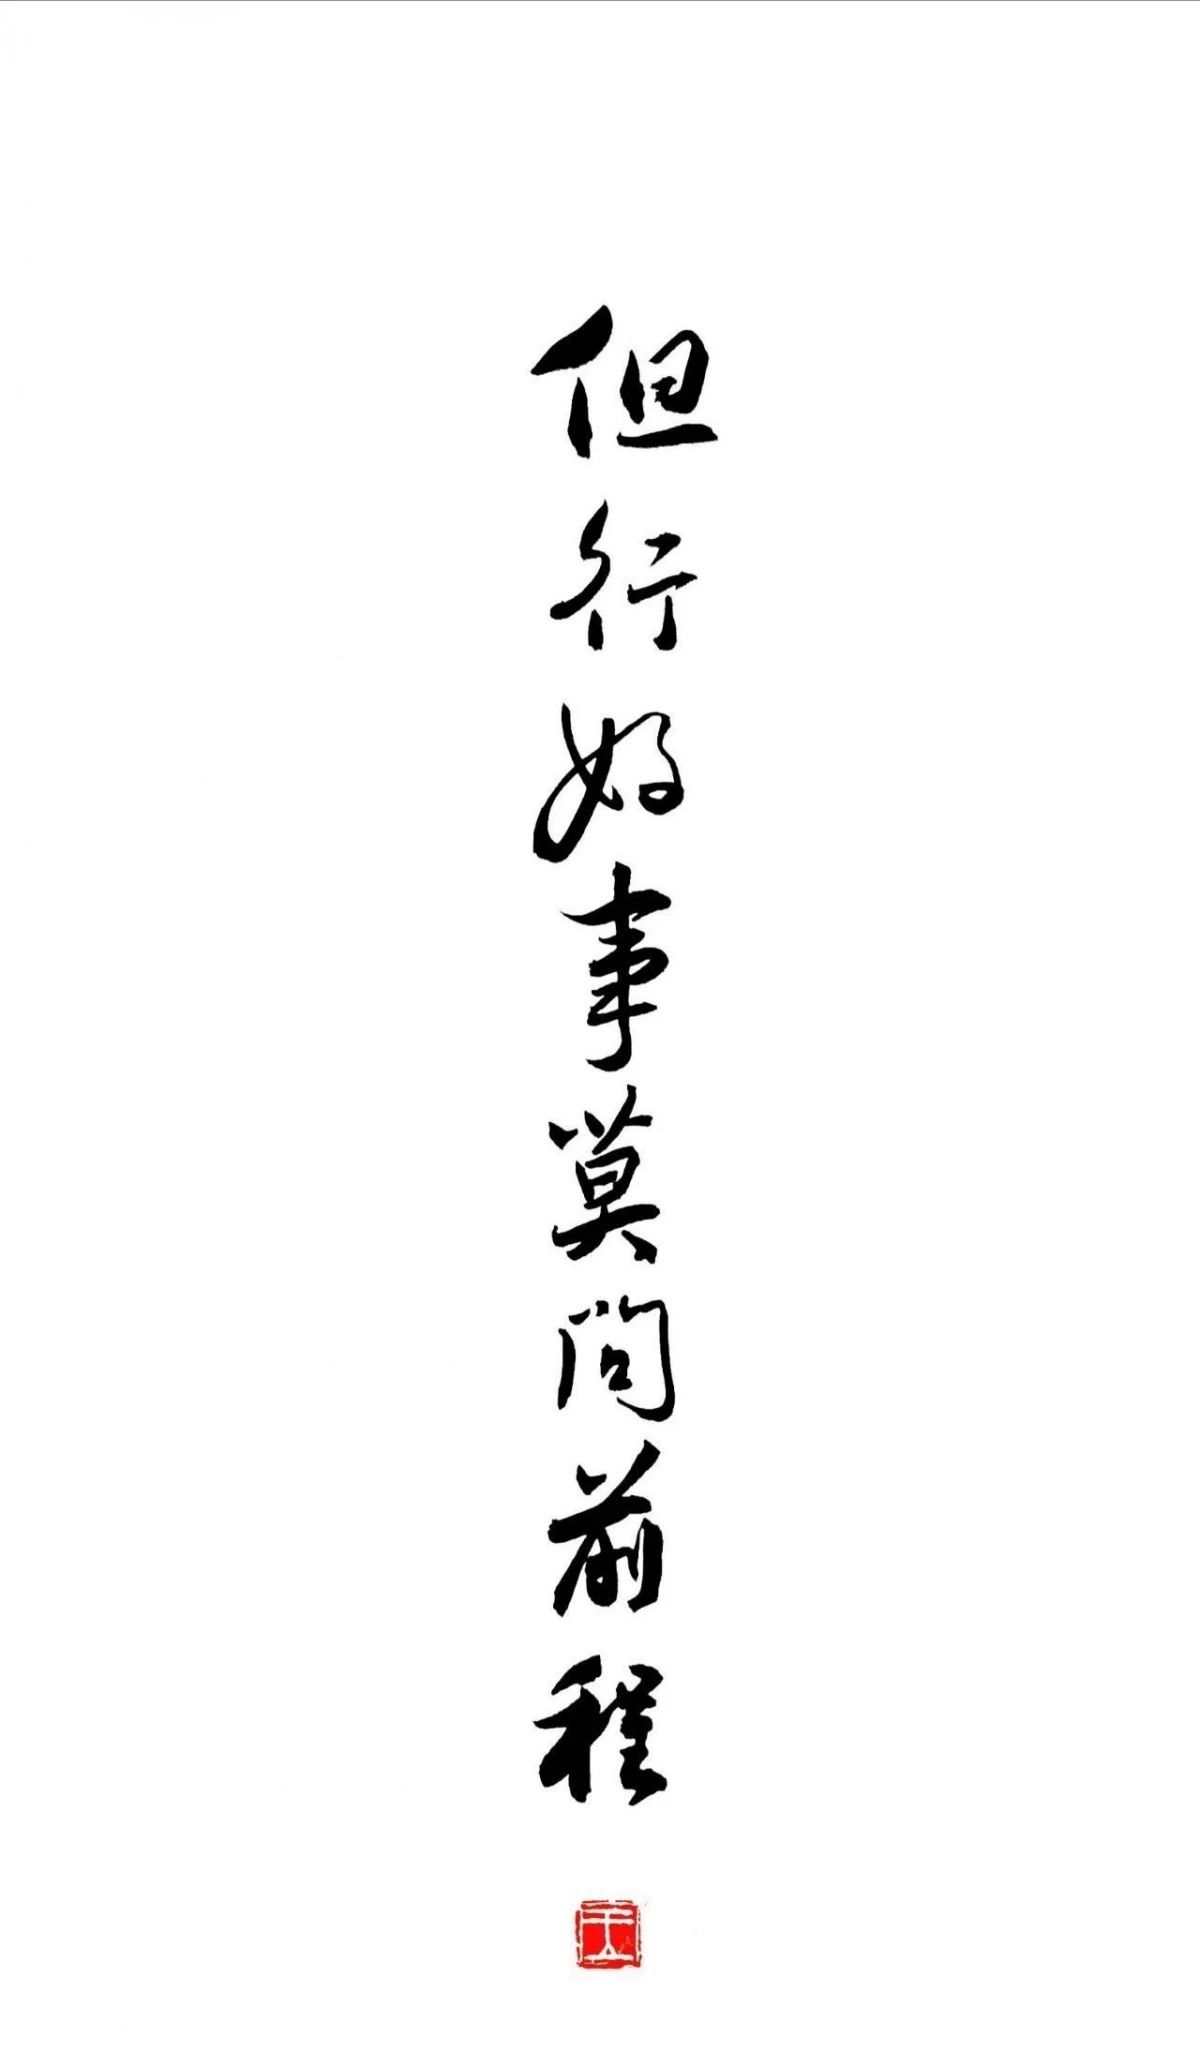 但行好事莫問前程